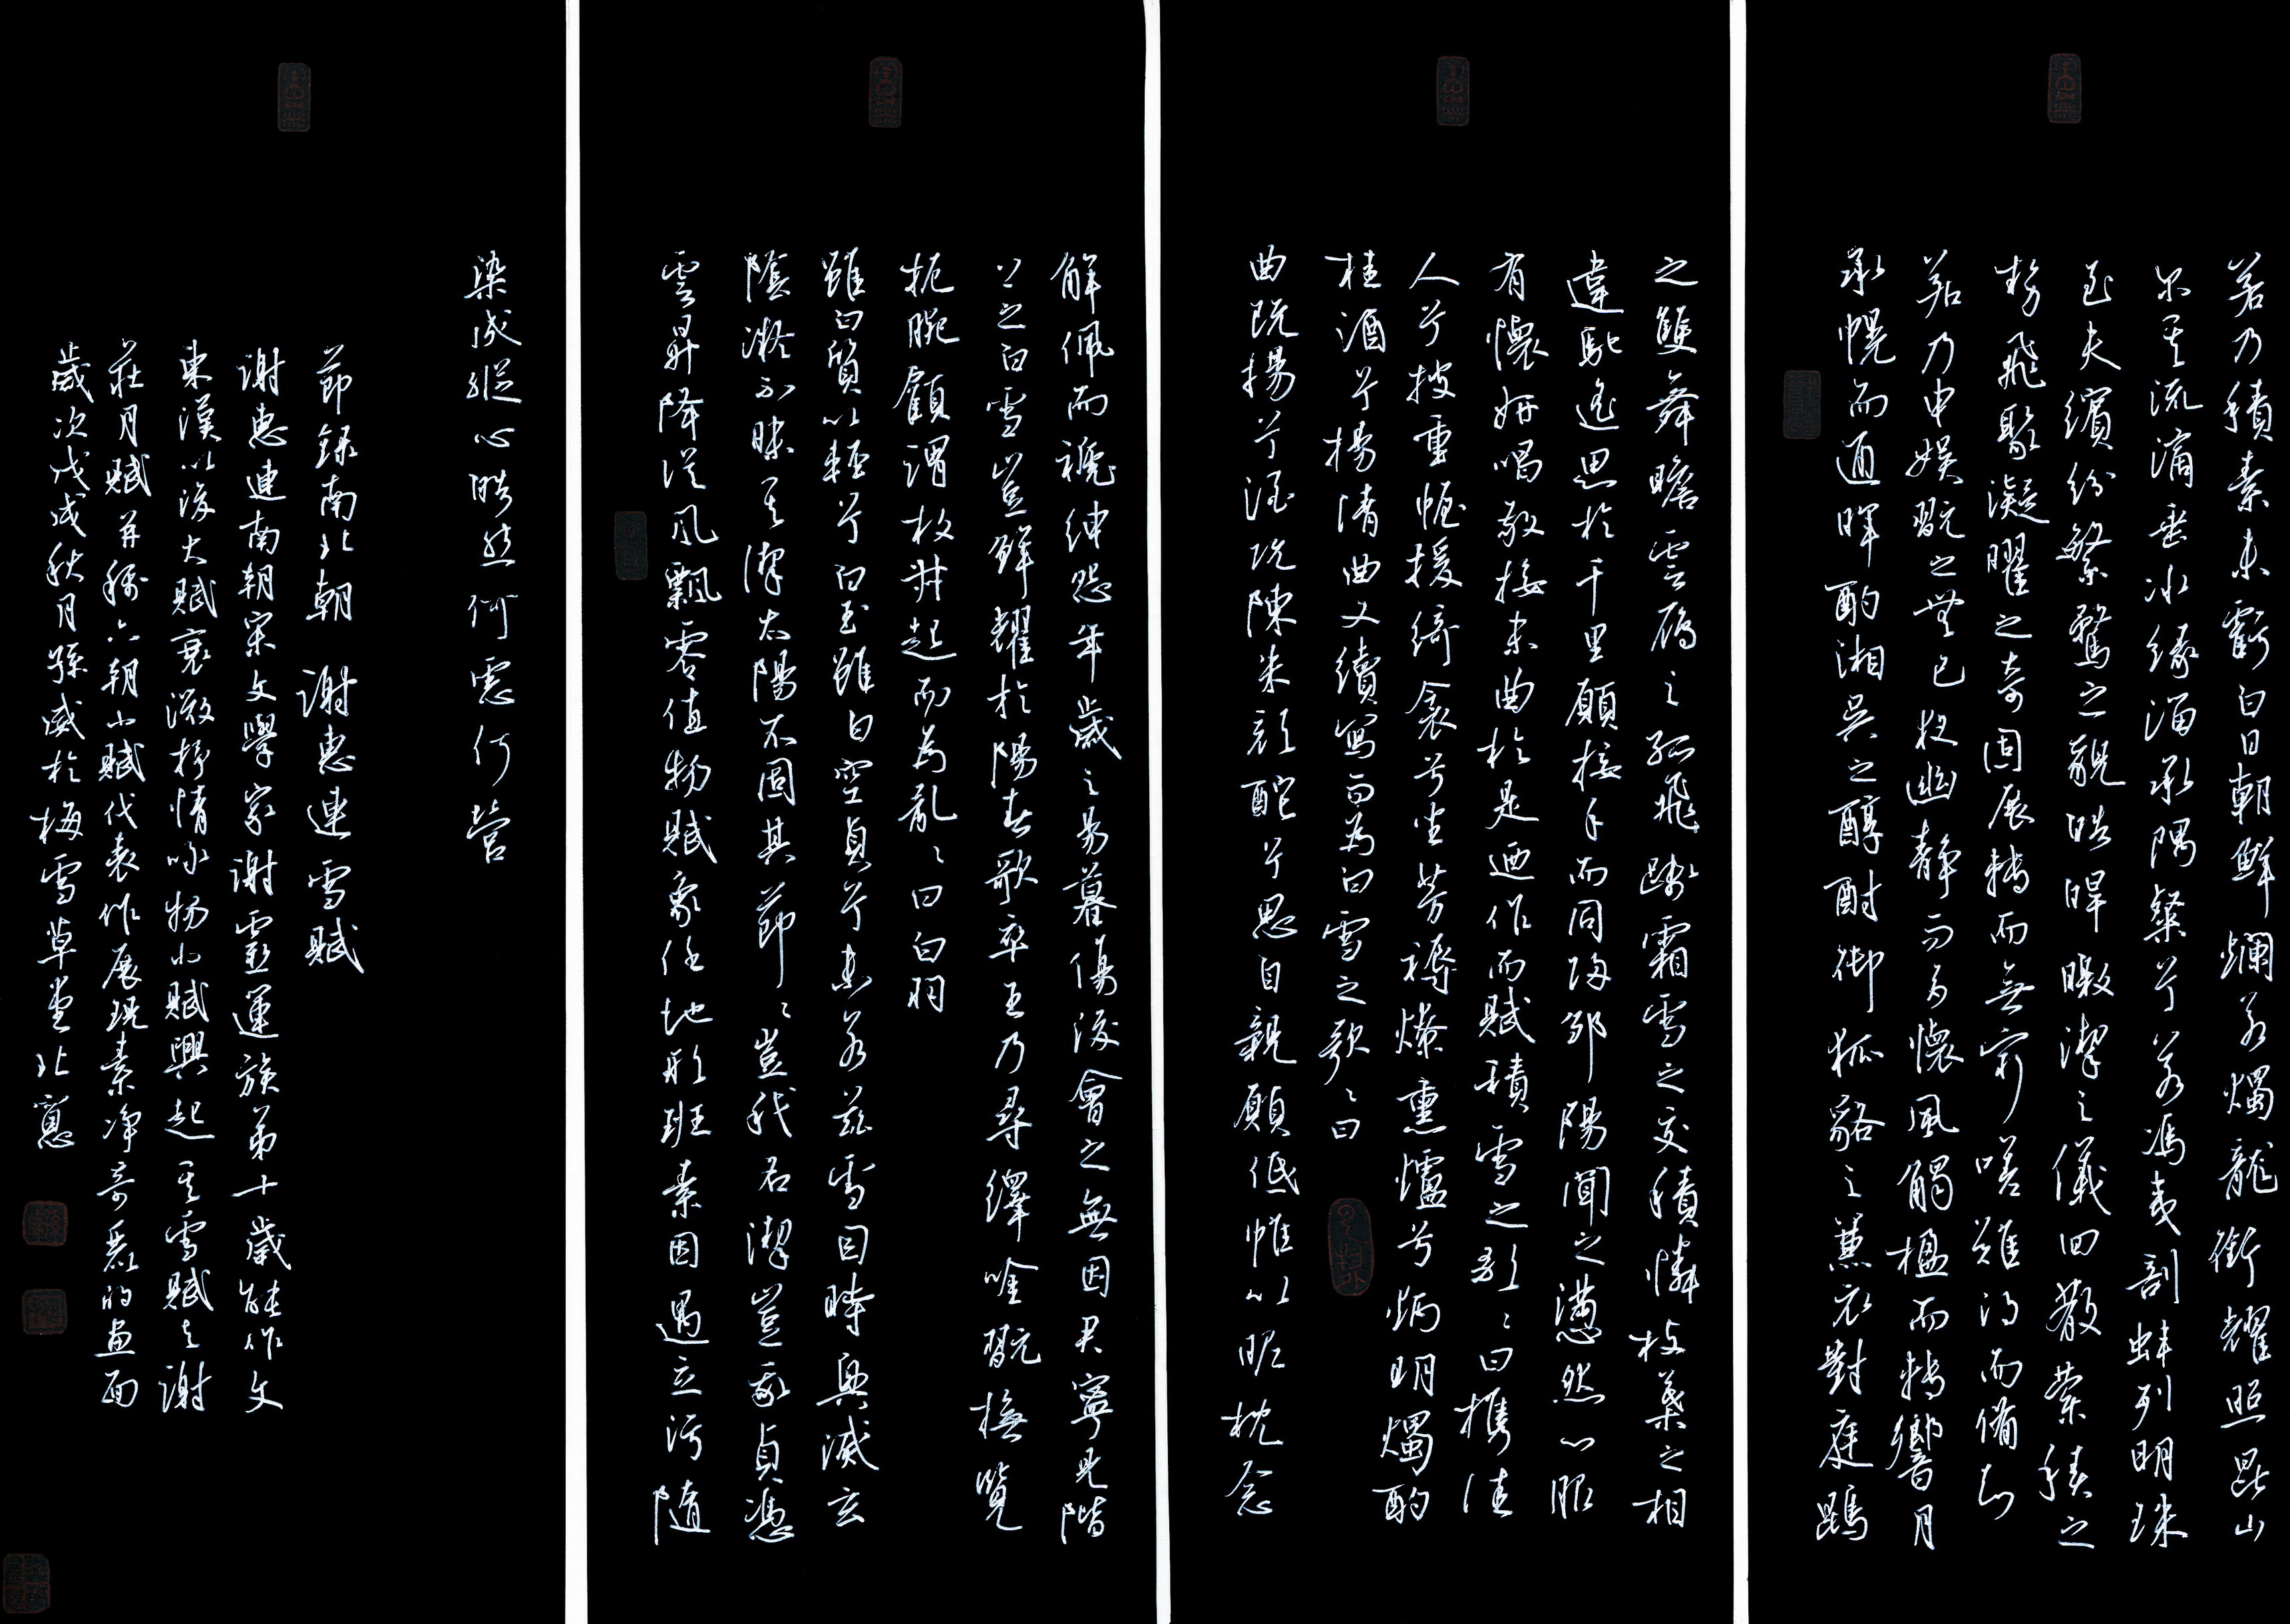 若乃積素未虧白日朝鮮爛兮若燭龍銜耀照崑山
爾其流滴垂冰緣溜承隅粲兮若馮夷剖蚌列明珠
至夫繽紛繁騖之貌皓皥曒潔之儀回散縈積之
勢飛聚凝曜之奇固展轉而無窮嗟難得而備知
若乃申娛翫之無已夜幽靜而多懷風觸楹而轉響月
承幌而通暉酌湘吳之醇酎御狐貉之蕙衣對庭鵾
之雙舞瞻雲雁之孤飛踐霜雪之交積憐枝葉之相
違馳遙思於千里願接手而同歸鄒陽聞之懣然心服
有懷妍唱敬接末曲於是迺作而賦積雪之歌々曰攜佳
人兮披重幄援綺衾兮坐芳褥燎熏爐兮炳明燭酌
桂酒兮揚清曲又續寫而為白雪之歌々曰
曲既揚兮酒既陳朱顏酡兮思自親願低帷以昵枕念
解佩而褫紳怨年歲之易暮傷後會之無因君寧見階
上之白雪豈鮮耀於陽春歌卒王乃尋繹吟翫撫覽
扼腕顧謂枚叔起而為亂々曰白羽
雖白質以輕兮白玉雖白空貞兮未若茲雪因時興滅玄
陰凝不昧其潔太陽不固其節々豈我名潔豈我貞憑
雲昇降從風飄零值物賦象任地形班素因遇立污隨
染成縱心皓然何慮何營
節錄南北朝 謝惠連雪賦
謝惠連南朝宋文學家謝靈運族弟十歲能作文
東漢以後大賦衰微抒情咏物小賦興起其雪賦与謝
莊月賦并稱六朝小賦代表作展現素净奇麗的畫面
歲次戊戌秋月孫威於梅雪草堂北窗